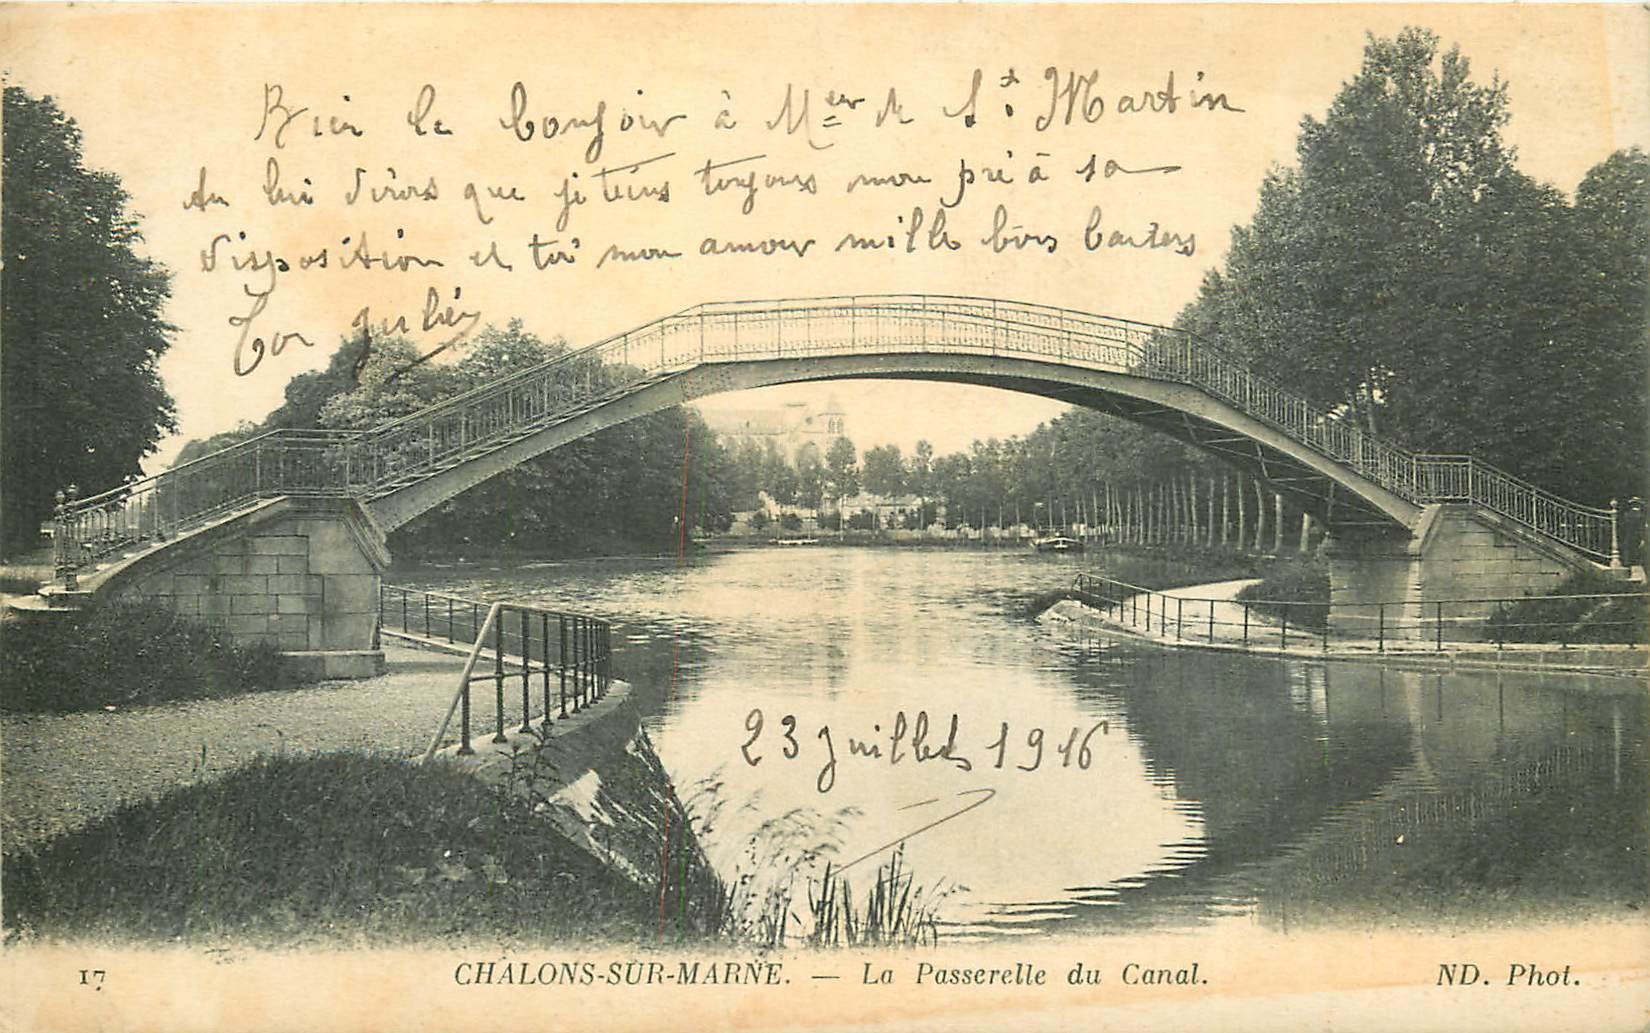 Bien le bonjour à Mr de St Martin
tu lui diras que je tiens toujours mon pré à sa
disposition et toi mon amour mille bons baisers
Ton Julien
23 Juillet 1916
17 CHALONS-SUR-MARNE. — La Passerelle du Canal. ND. Phot.